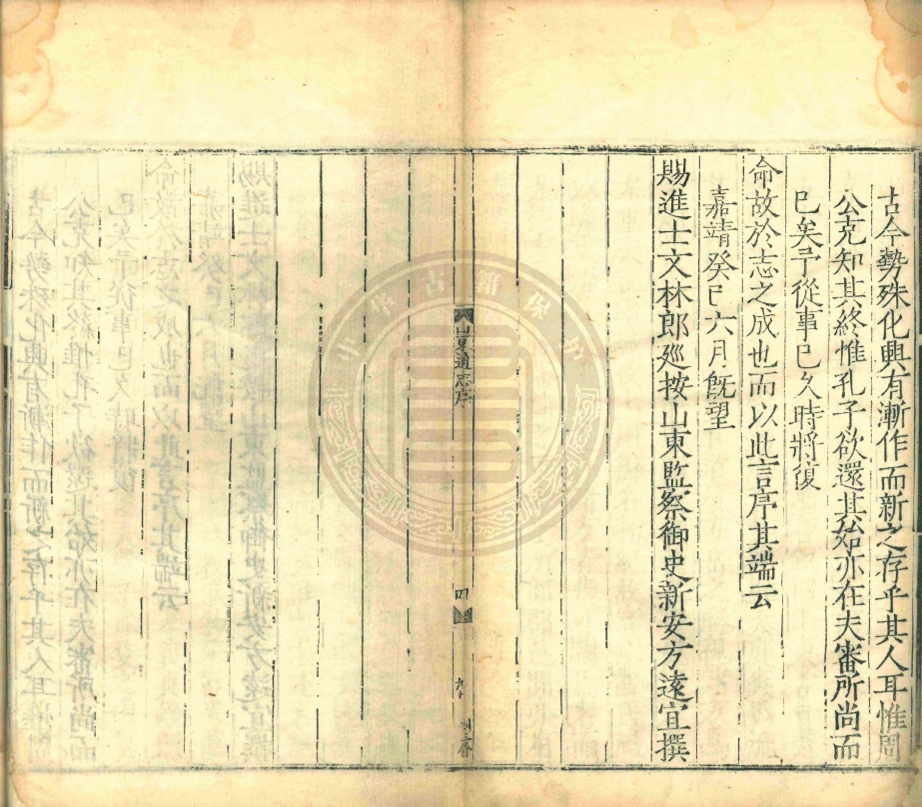 古今勢殊化興有漸作而新之存乎其人耳惟周
公克知其終惟孔子欲還其始亦在夫審所尚而
已矣予從事已久時將復
命故於志之成也而以此言序其端云
嘉靖癸巳六月旣望
賜進士文林郎廵按山東監察御史新安方遠宜撰
山東通志序
四